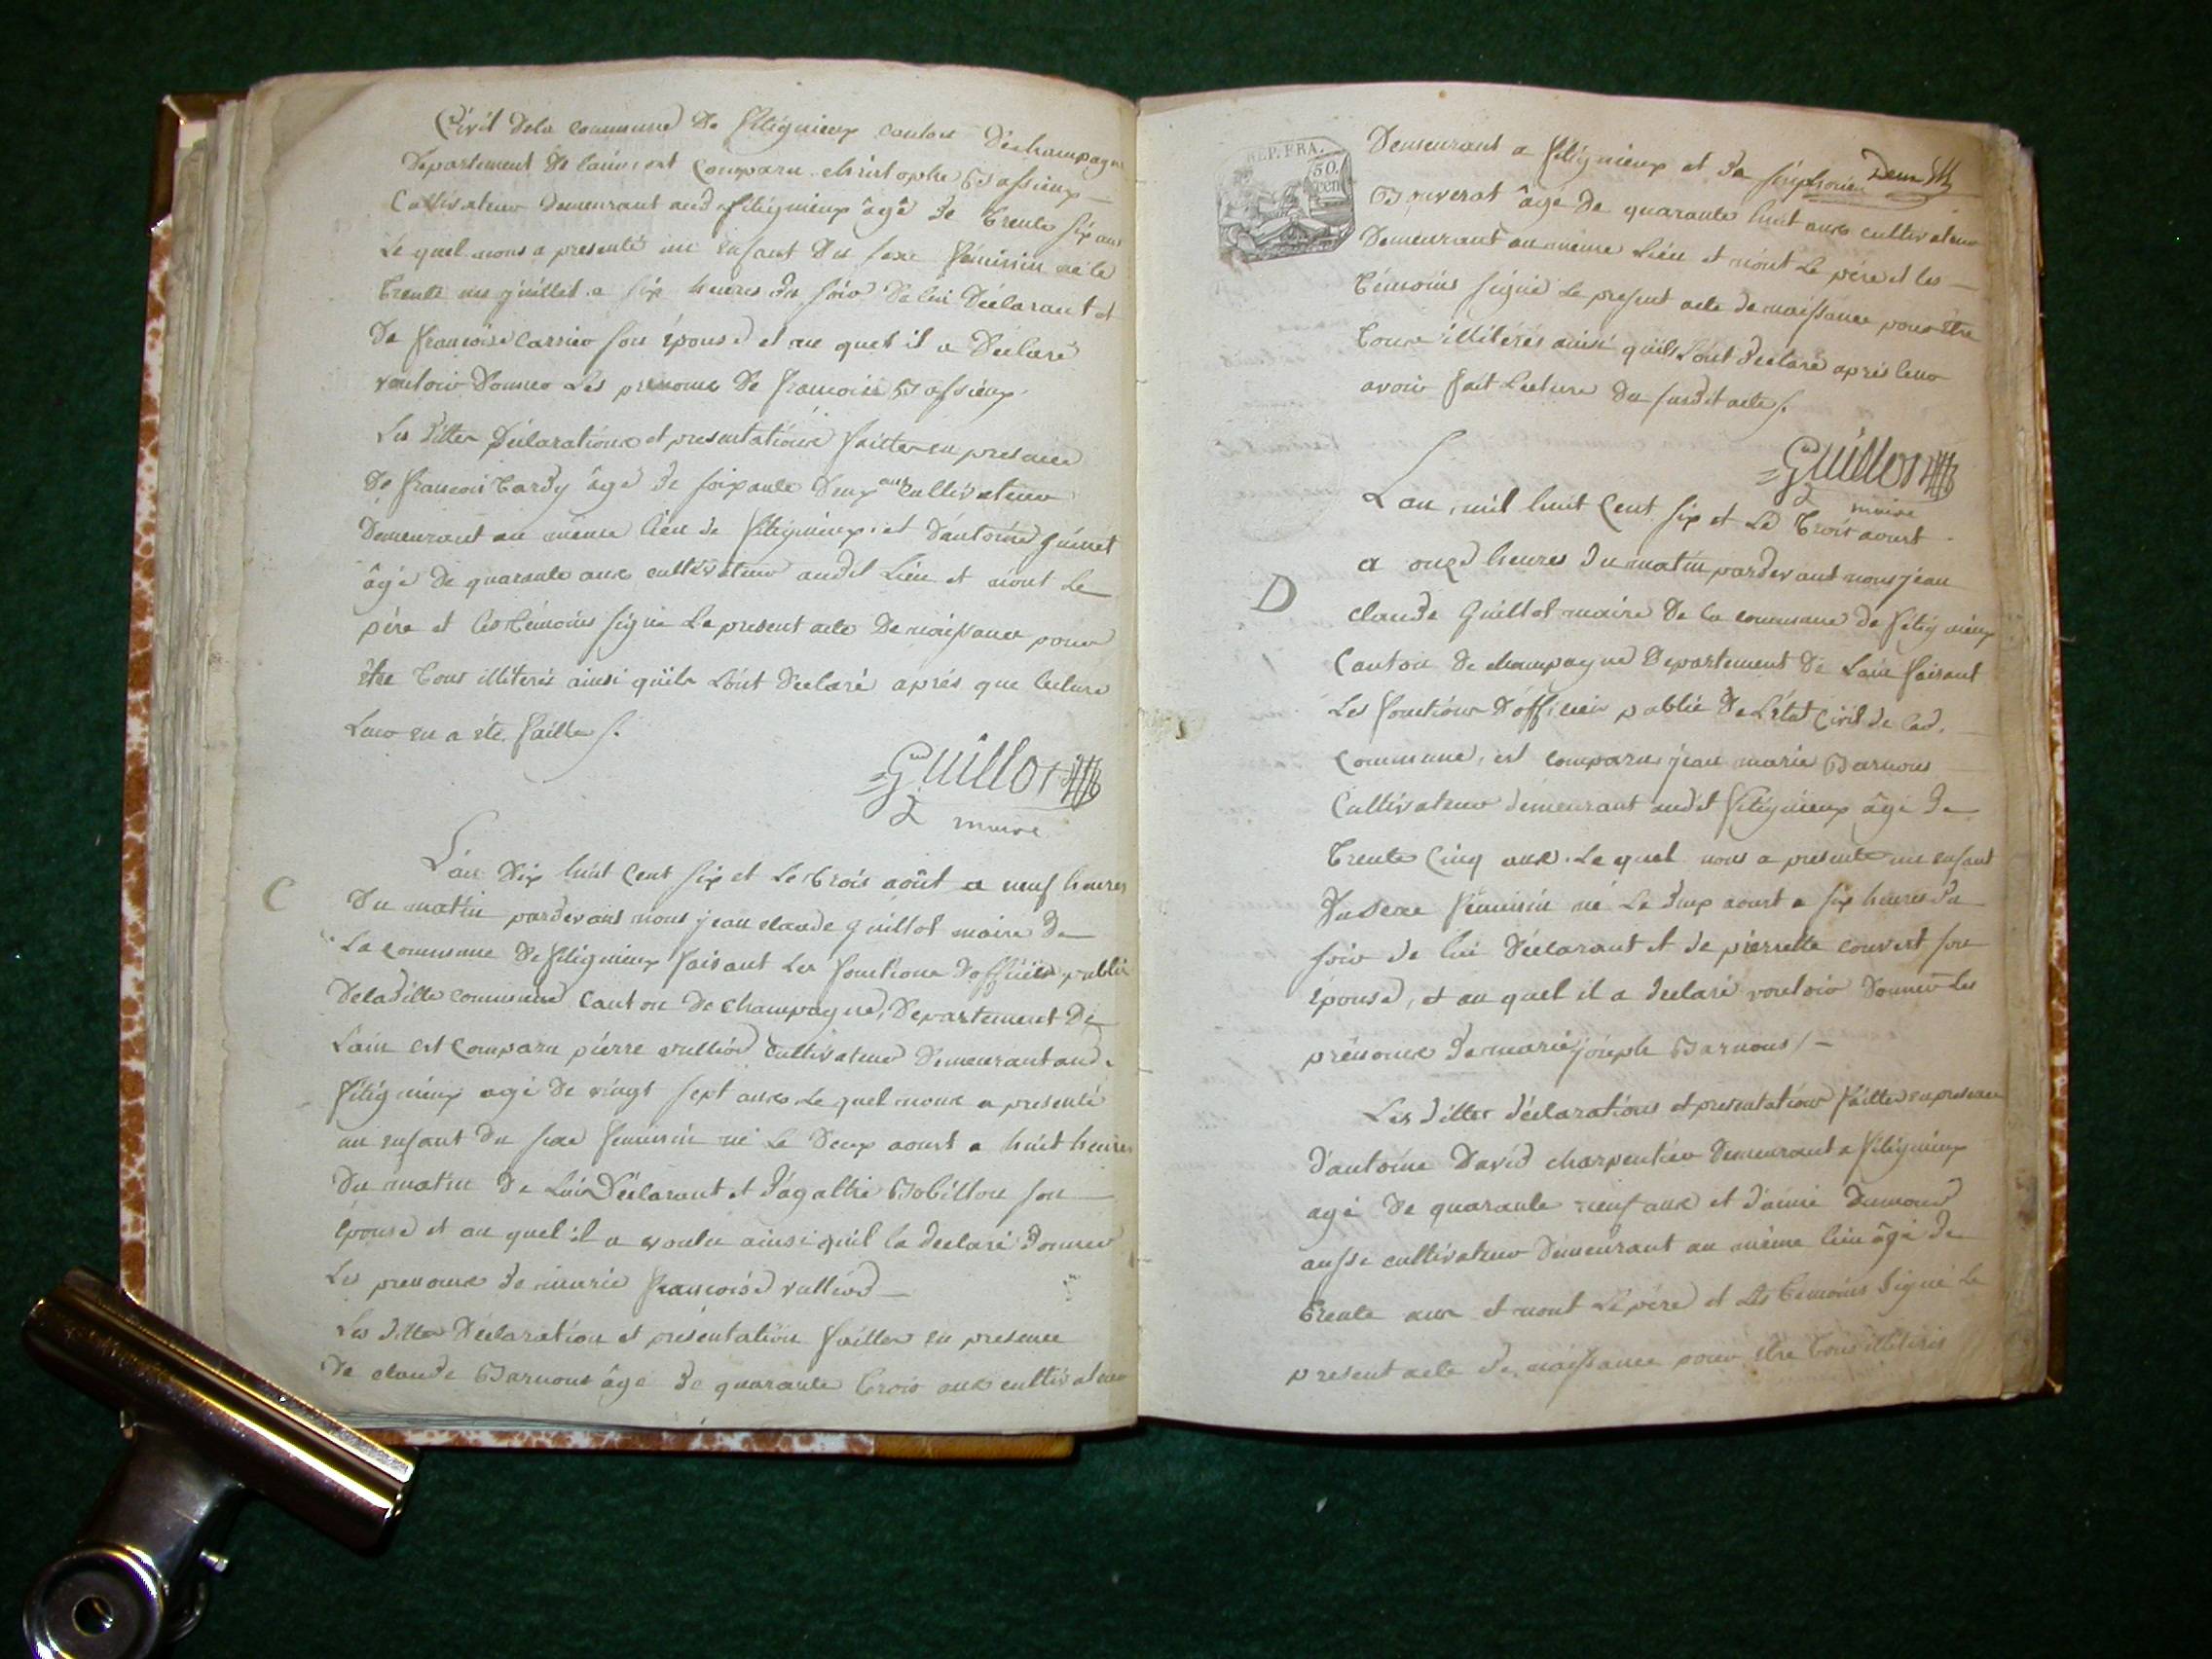 Civil dela commune de fitignieux canton de champagne
Departement de lain est comparu christophe Bassieux
Cultivateur demeurant aud. fitignieux âgé de trente six ans
le quel nous a presenté un enfant du sexe féminin né le
trente un juillet a six heures du soir de lui Déclarant et
de francoise carrier son épouse et au quel il a déclaré
vouloir donner les prenoms de francoise Bassieux.
Les dittes Déclarations et presentations faittes en presence
de francois tardy âgé de soixante deux ans cultivateur
demeurant au même lieu de fitignieux. et d'antoine guinet
âgé de quarante ans cultivateur audit lieu et n'ont le
père et les témoins signé le present acte de naissance pour
être tous illiterés ainsi qu'ils l'ont déclaré aprés que lecture
leur en a été faitte /.
Guillot
maire
C
L'an dix huit cent six et le trois août a neuf heures
du matin pardevant nous jean claude guillot maire de
la commune de fitignieux faisant les fonctions d'officier public
deladitte commune canton de champagne, departement de
Lain est comparu pierre vullied cultivateur demeurant aud.
fitignieux agé de vingt sept ans le quel nous a presenté
un enfant du sexe feminin né le deux aoust a huit heures
du matin de lui Déclarant et d'agathe Bobillon son
épouse et au quel il a voulu ainsi quil la declaré donner
les prenoms de marie francoise vullied
Les dittes Déclaration et présentation faittes en presence
de claude Barnous âgé de quarante trois ans cultivateur
REP. FRA.
50.
cen
Demeurant a fitignieux et de
Bouverat âgé de quarante huit ans cultivateur
Demeurant au même lieu et n'ont le père et les
témoins signé le present acte de naissance pour être
tous illiterés ainsi qu'ils l'ont declaré aprés leur
avoir fait lecture du susdit acte /.
Guillot
maire
D
L'an mil huit cent six et le trois aoust
a onze heures du matin pardevant nous jean
claude guillot maire de la commune de fitignieux
canton de champagne departement de Lain faisant
les fonctions d'officier public de l'état civil de lad.
commune, est comparu jean marie Barnous
cultivateur demeurant audit fitignieux âgé de
trente cinq ans. le quel nous a presenté un enfant
du sexe féminin né le deux aoust a six heures du
soir de lui Déclarant et de pierrette couvert son
épouse, et au quel il a declaré vouloir donner les
prénoms de marie joseph Barnous / -
Les dittes déclarations et presentations faittes en presence
d'antoine David charpentier demeurant a fitignieux
agé de quarante neuf ans et d'aimé Dumond
aussi cultivateur demeurant au même lieu âgé de
trente ans et n'ont le père et les temoins signé le
present acte de naissance pour être tous illiterés